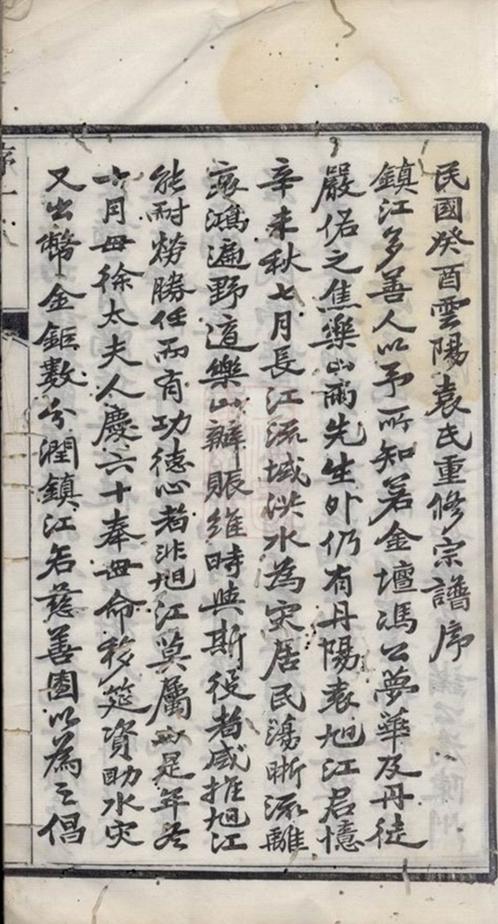 民國癸酉雲陽袁氏重修宗譜序
鎮江多善人以予所知若金壇馮公夢華及丹徒
嚴佑之焦樂山兩先生外仍有丹陽袁旭江君憶
辛未秋七月長江流域洪水為災居民蕩晰流離
哀鴻遍野道樂山辦賑維時與斯役者咸推旭江
能耐勞勝任而有功德心者非旭江莫屬是年冬
十月母徐太夫人慶六十奉母命移筵資助水災
又出幣金鉅數分潤鎮江各慈善團以為之倡
序一